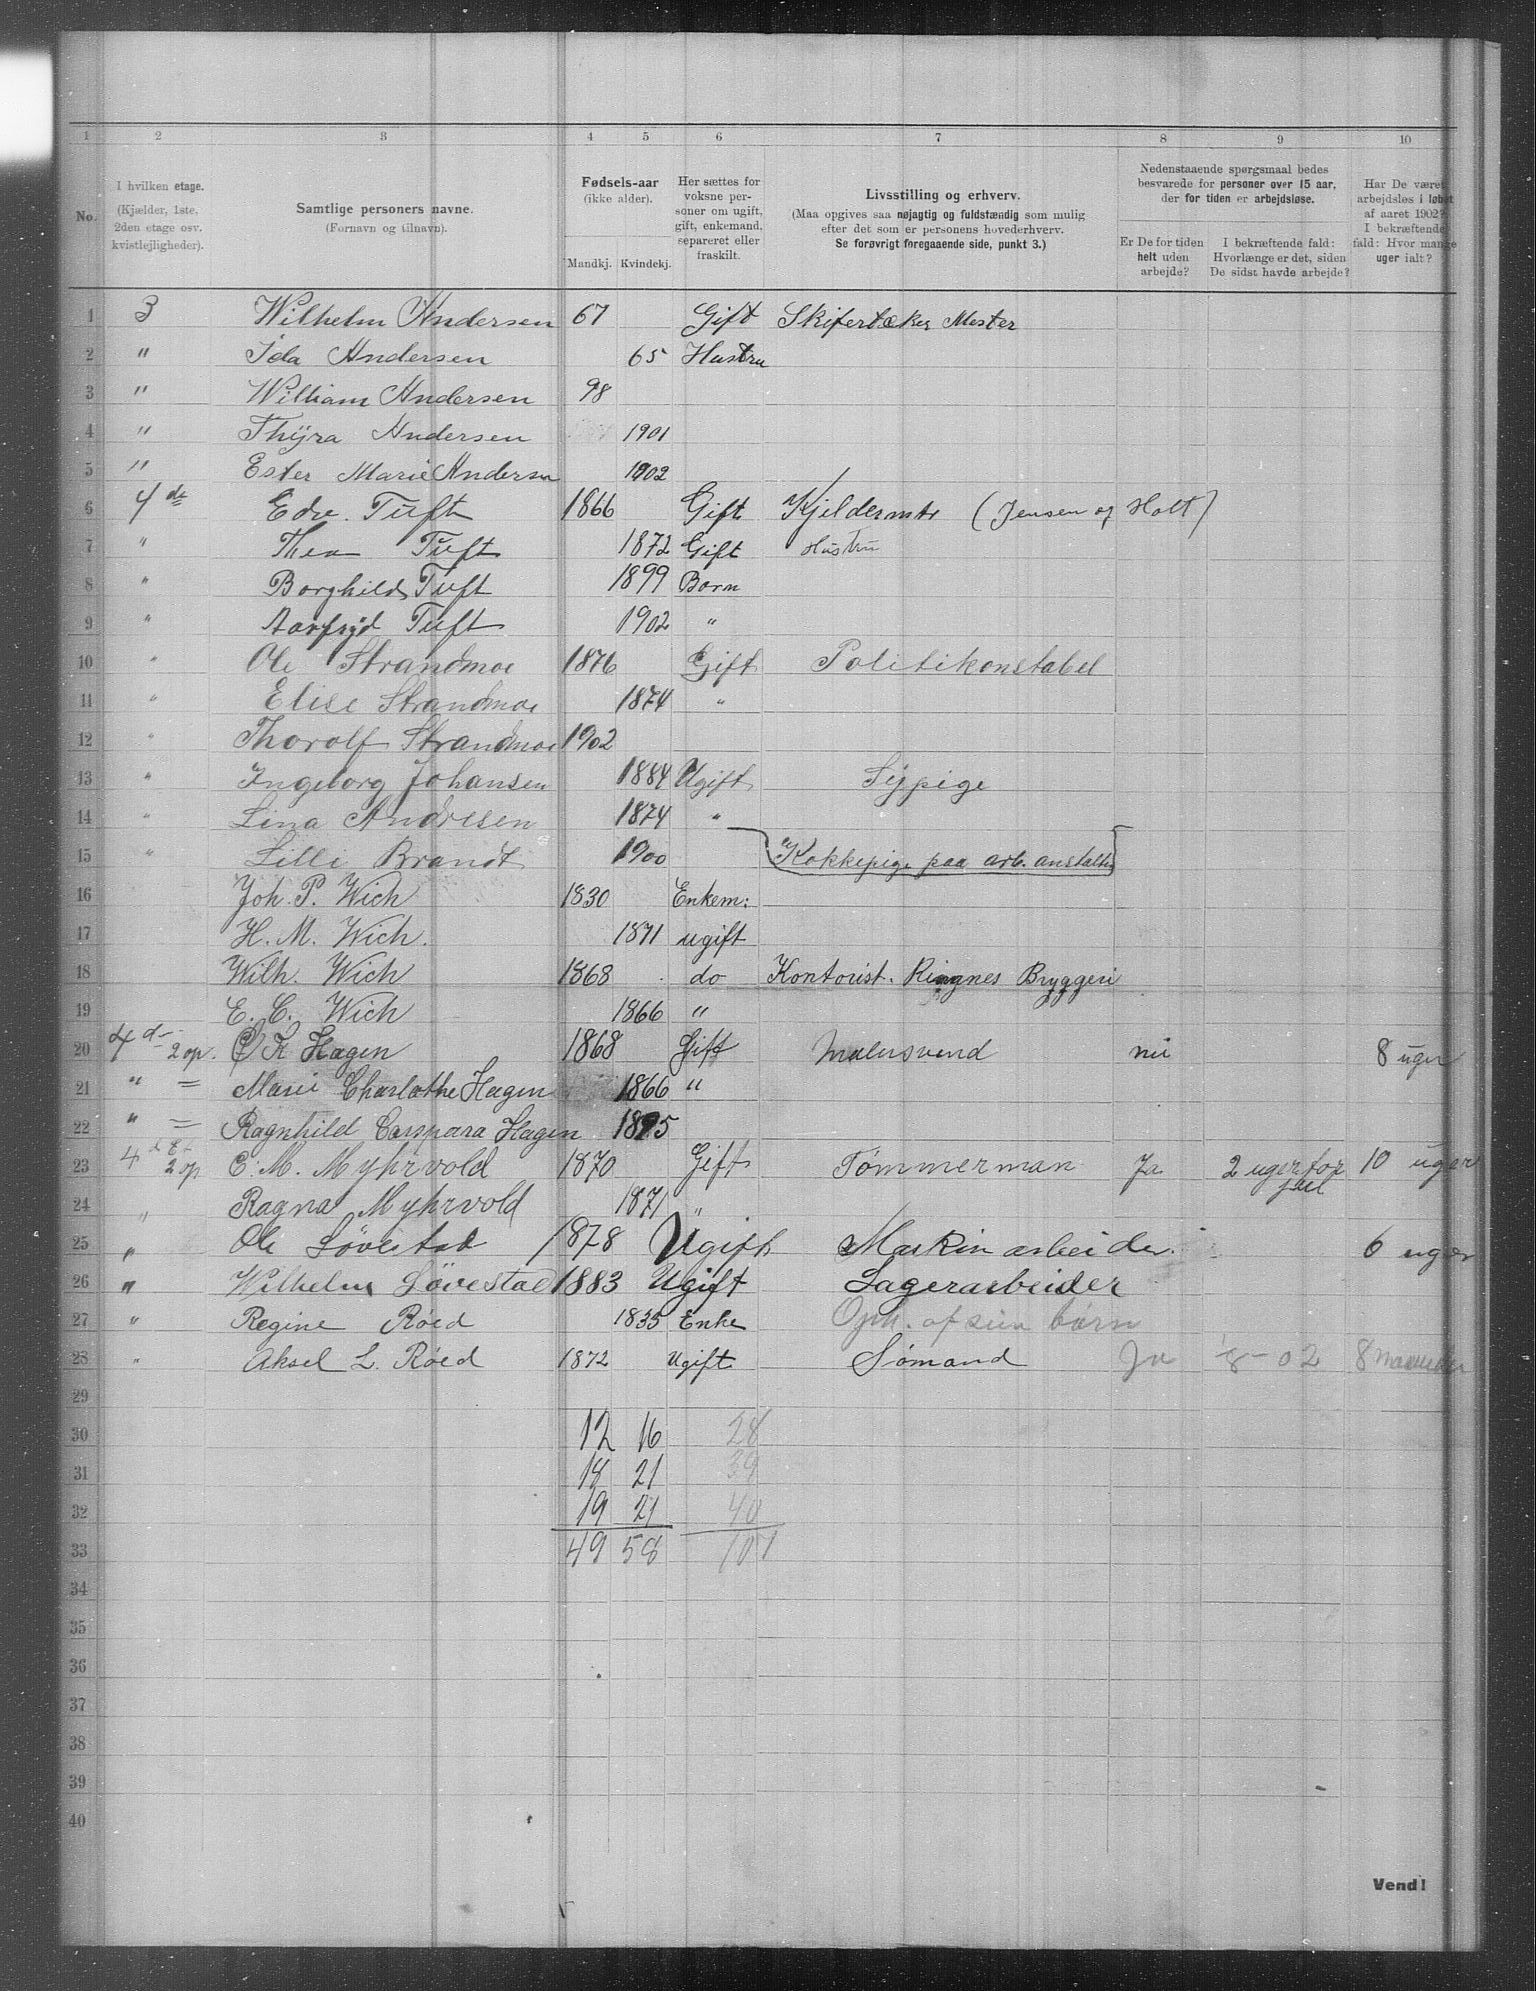 1 2 3 4 5 6 7 8 9 10
No.
I hvilken etage.
(Kjælder, 1ste,
2den etage osv.
kvistlejligheder).
Samtlige personers navne.
(Fornavn og tilnavn).
Fødsels-aar
(ikke alder).
Mandkj. Kvindekj.
Her sættes for
voksne per-
soner om ugift,
gift, enkemand,
separeret eller
fraskilt.
Livsstilling og erhverv.
(Maa opgives saa nøjagtig og fuldstændig som mulig
efter det som er personens hovederhverv.
Se forøvrigt foregaaende side, punkt 3.)
Nedenstaaende spørgsmaal bedes
besvarede for personer over 15 aar,
der for tiden er arbejdsløse.
Er De for tiden
helt uden
arbejde?
I bekræftende fald:
Hvorlænge er det, siden
De sidst havde arbejde?
Har De været
arbejdsløs i løbet
af aaret 1902?
I bekræftende
fald: Hvor mange
uger ialt?
1 3 Wilhelm Andersen 67 Gift Skifertæker Mester
2 " Ida Andersen 65 Hustru
3 " William Andersen 98
4 " Thyra Andersen 1901
5 " Ester Marie Andersen 1902
6 4de Edv. Tuft 1866 Gift Kjeldermstr (Jensen og Holt)
7 " Thea Tuft 1872 Gift Hustru
8 " Borghild Tuft 1899 Barn
9 " Tuft 1902 "
10 " Ole Strandmoe 1876 Gift Politikonstabel
11 " Elise Strandmoe 1874 "
12 " Thorolf Strandmoe 1902
13 " Ingeborg Johansen 1884 Ugift Sypige
14 " Lina Andresen 1874 "
15 " Lilli Brandt 1900 Kokkepige paa arb. anstalten
16 Joh. P. Wich 1830 Enkem:
17 H. M. Wich. 1871 ugift
18 Wilh. Wich 1868 do Kontorist. Ringnes Bryggeri
19 E. C. Wich 1866 "
20 4de 2 op. Hagen 1868 Gift Malersvend nei 8 uger
21 " = Marie Charlothe Hagen 1866 "
22 " = Ragnhild Caspara Hagen 1895
23 4 2 op C. M. Myhrvold 1870 Gift Tømmerman Ja 2 uger for jul 10 uger
24 " Ragna Myhrvold 1871 "
25 " Ole Løvestad 1878 Ugift Maskinarbeider. 6 uger
26 " Wilhelm Løvestad 1883 Ugift Lagerarbeider
27 " Regine Røed 1835 Enke Oph. af sin børn
28 " Aksel L. Røed 1872 Ugift Sømand Ja 1/8 - 02 8 maaneder
29
30 12 16 28
31 18 21 39
32 19 21 40
33 49 58 107
34
35
36
37
38
39
40
Vend!